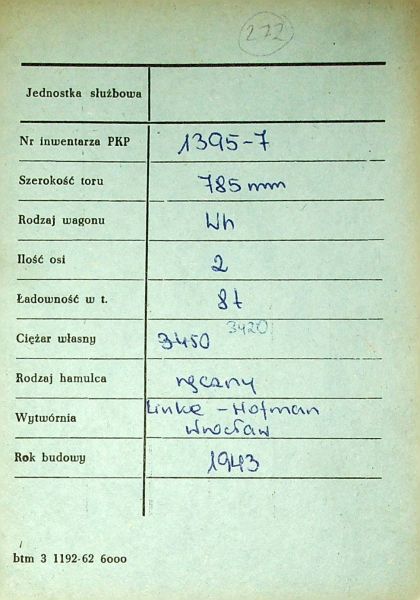 272
Jednostka służbowa
Nr inwentarza PKP 1395-7
Szerokość toru 785 mm
Rodzaj wagonu Wh
Ilość osi 2
Ładowność w t. 8t
3420
Ciężar własny 3450
Rodzaj hamulca ręczny
Wytwórnia Linke - Hofman
Wrocław
Rok budowy 1943
btm 3 1192-62 6000